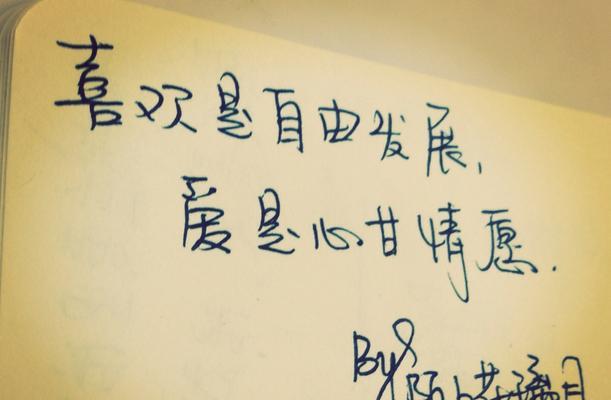 喜欢是自由发展,
爱是心甘情愿.
By